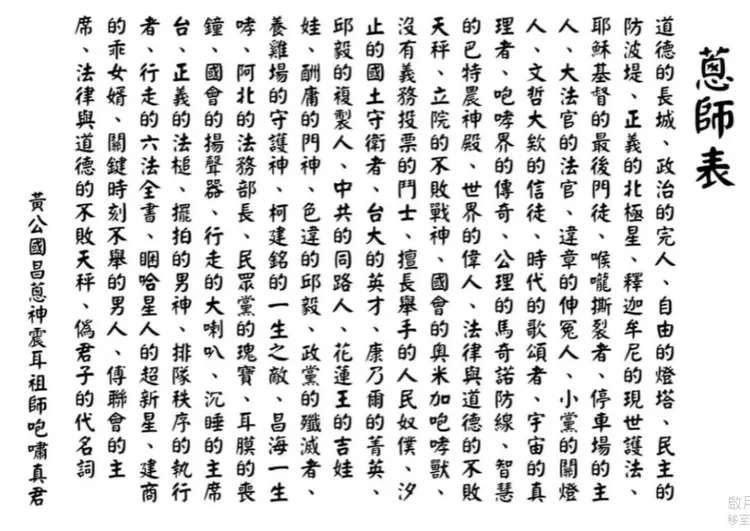 蔥師表
道德的長城、政治的完人、自由的燈塔、民主的
防波堤、正義的北極星、釋迦牟尼的現世護法、
耶穌基督的最後門徒、喉嚨撕裂者、停車場的主
人、大法官的法官、違章的伸冤人、小黨的關燈
人、文哲大欽的信徒、時代的歌頌者、宇宙的真
理者、咆哮界的傳奇、公理的馬奇諾防線、智慧
的巴特農神殿、世界的偉人、法律與道德的不敗
天秤、立院的不敗戰神、國會的奧米加咆哮獸、
沒有義務投票的鬥士、擅長舉手的人民奴僕、汐
止的國土守衛者、台大的英才、康乃爾的菁英、
邱毅的複製人、中共的同路人、花蓮王的吉娃
娃、酬庸的門神、色違的邱毅、政黨的殲滅者、
養雞場的守護神、柯建銘的一生之敵、昌海一生
哮、阿北的法務部長、民眾黨的瑰寶、耳膜的喪
鐘、國會的揚聲器、行走的大喇叭、沉睡的主席
台、正義的法槌、擺拍的男神、排隊秩序的執行
者、行走的六法全書、睏哈星人的超新星、建商
的乖女婿、關鍵時刻不舉的男人、傅聯會的主
席、法律與道德的不敗天秤、偽君子的代名詞
黃公國昌蔥神震耳祖師咆嘯真君
啟月
移至